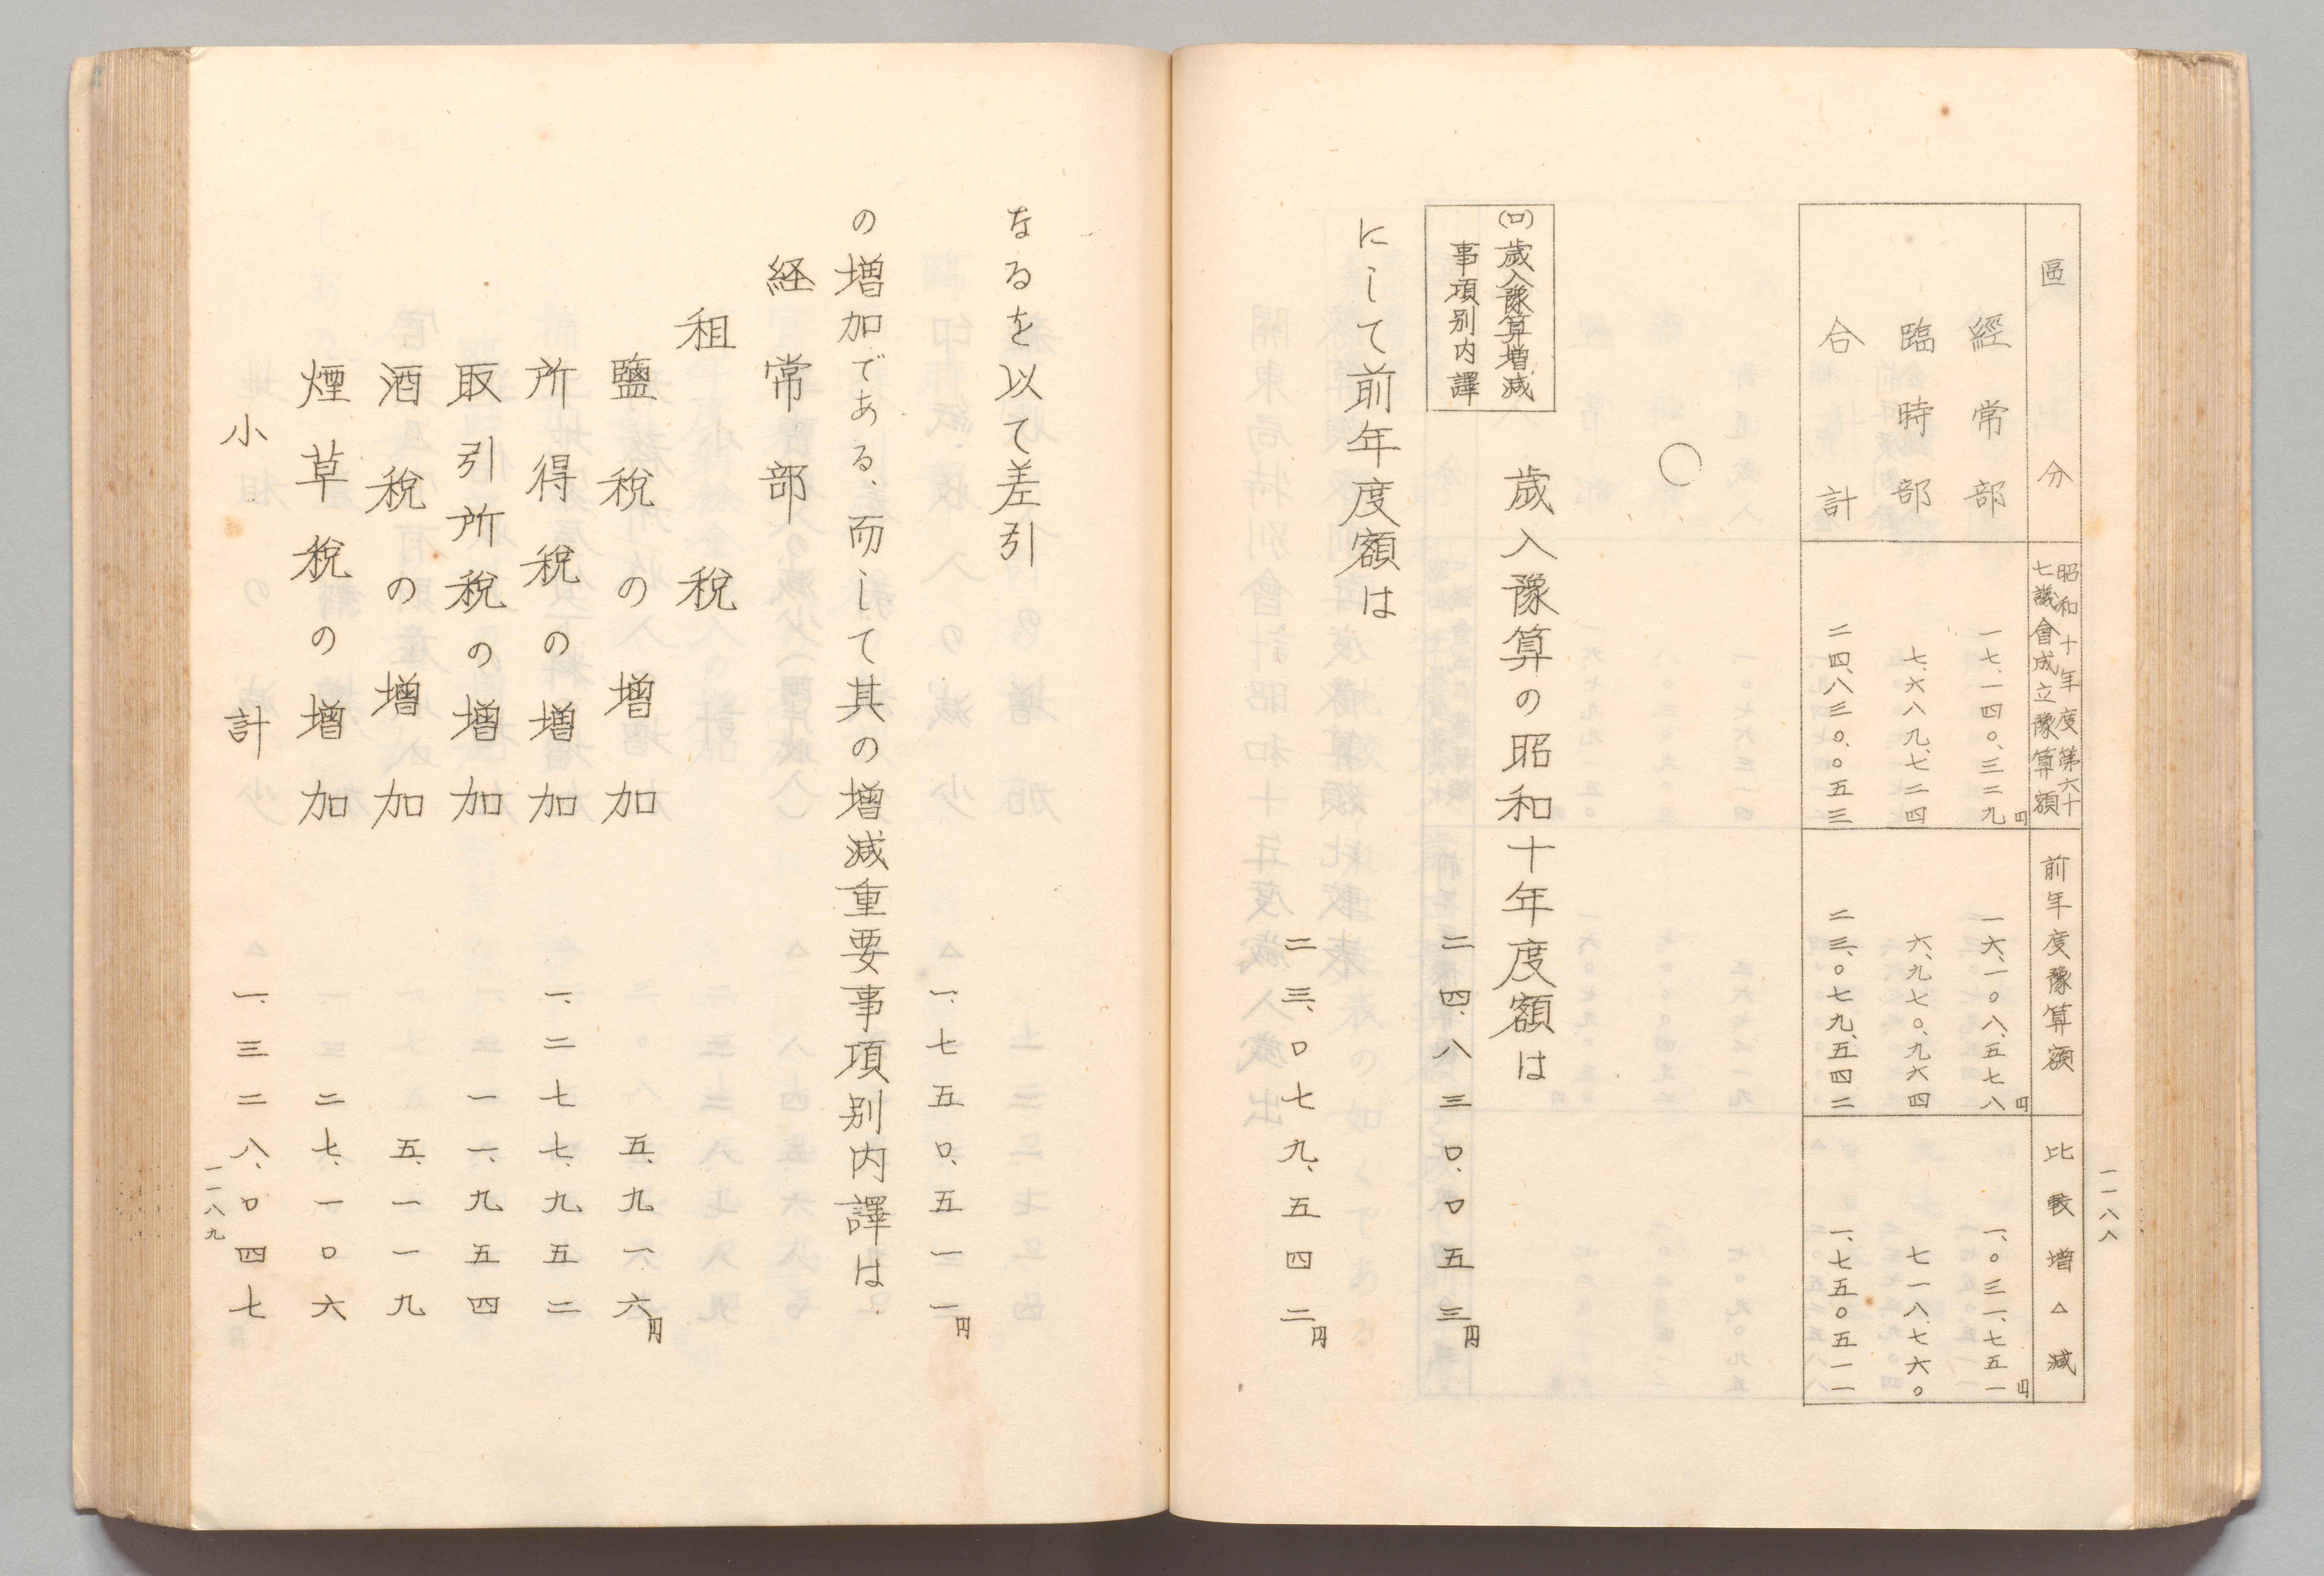 一一八八
區分 昭和十年度第六十七議會成立豫算額 前年度豫算額 比較增△減
經常部 一七、一四〇、三二九円 一六、一〇八、五七八円 一、〇三一、七五一円
臨時部 七、六八九、七二四 六、九七〇、九六四 七一八、七六〇
合計 二四、八三〇、〇五三 二三、〇七九、五四二 一、七五〇五一一
○
(ロ)歳入豫算增減
事項別内譯
歳入豫算の昭和十年度額は
二四、八三〇、〇五三円
にして前年度額は
二三、〇七九、五四二円
なるを以て差引
一、七五〇、五一一円
の增加である、而して其の增減重要事項別内譯は
経常部
租税
鹽税の增加 五、九一六円
所得税の增加 一、二七七、九五二
取引所税の增加 一一、九五四
酒税の增加 五、一一九
煙草税の增加 二七、一〇六
小計 一、三二八、〇四七
一一八九